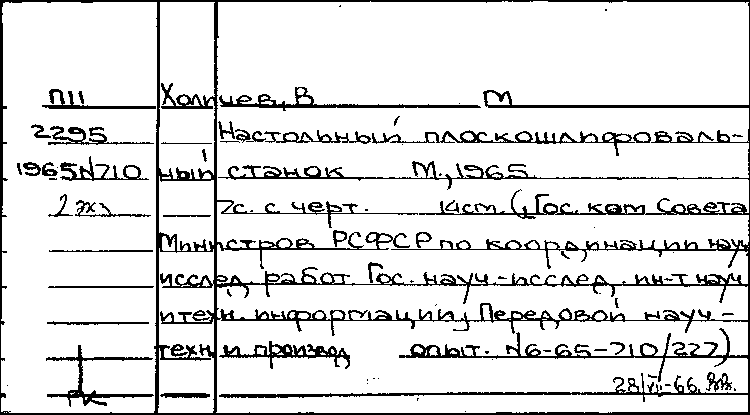 П11 Холичев, В М
2295 Настольный плоскошлифоваль-
1965N710 ный станок М., 1965.
2 экз 7с. с черт. 14см. (Гос. ком Совета
Министров РСФСР по координации науч
исслед. работ. Гос. науч.-исслед. ин-т науч
и техн. информации, Передовой науч-
техн и произвд опыт. N6-65-710/227)
РК 28/VII-66.